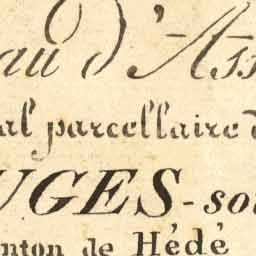 au d'Ass
al parcellaire d
UGES-sou
anton de Hédé